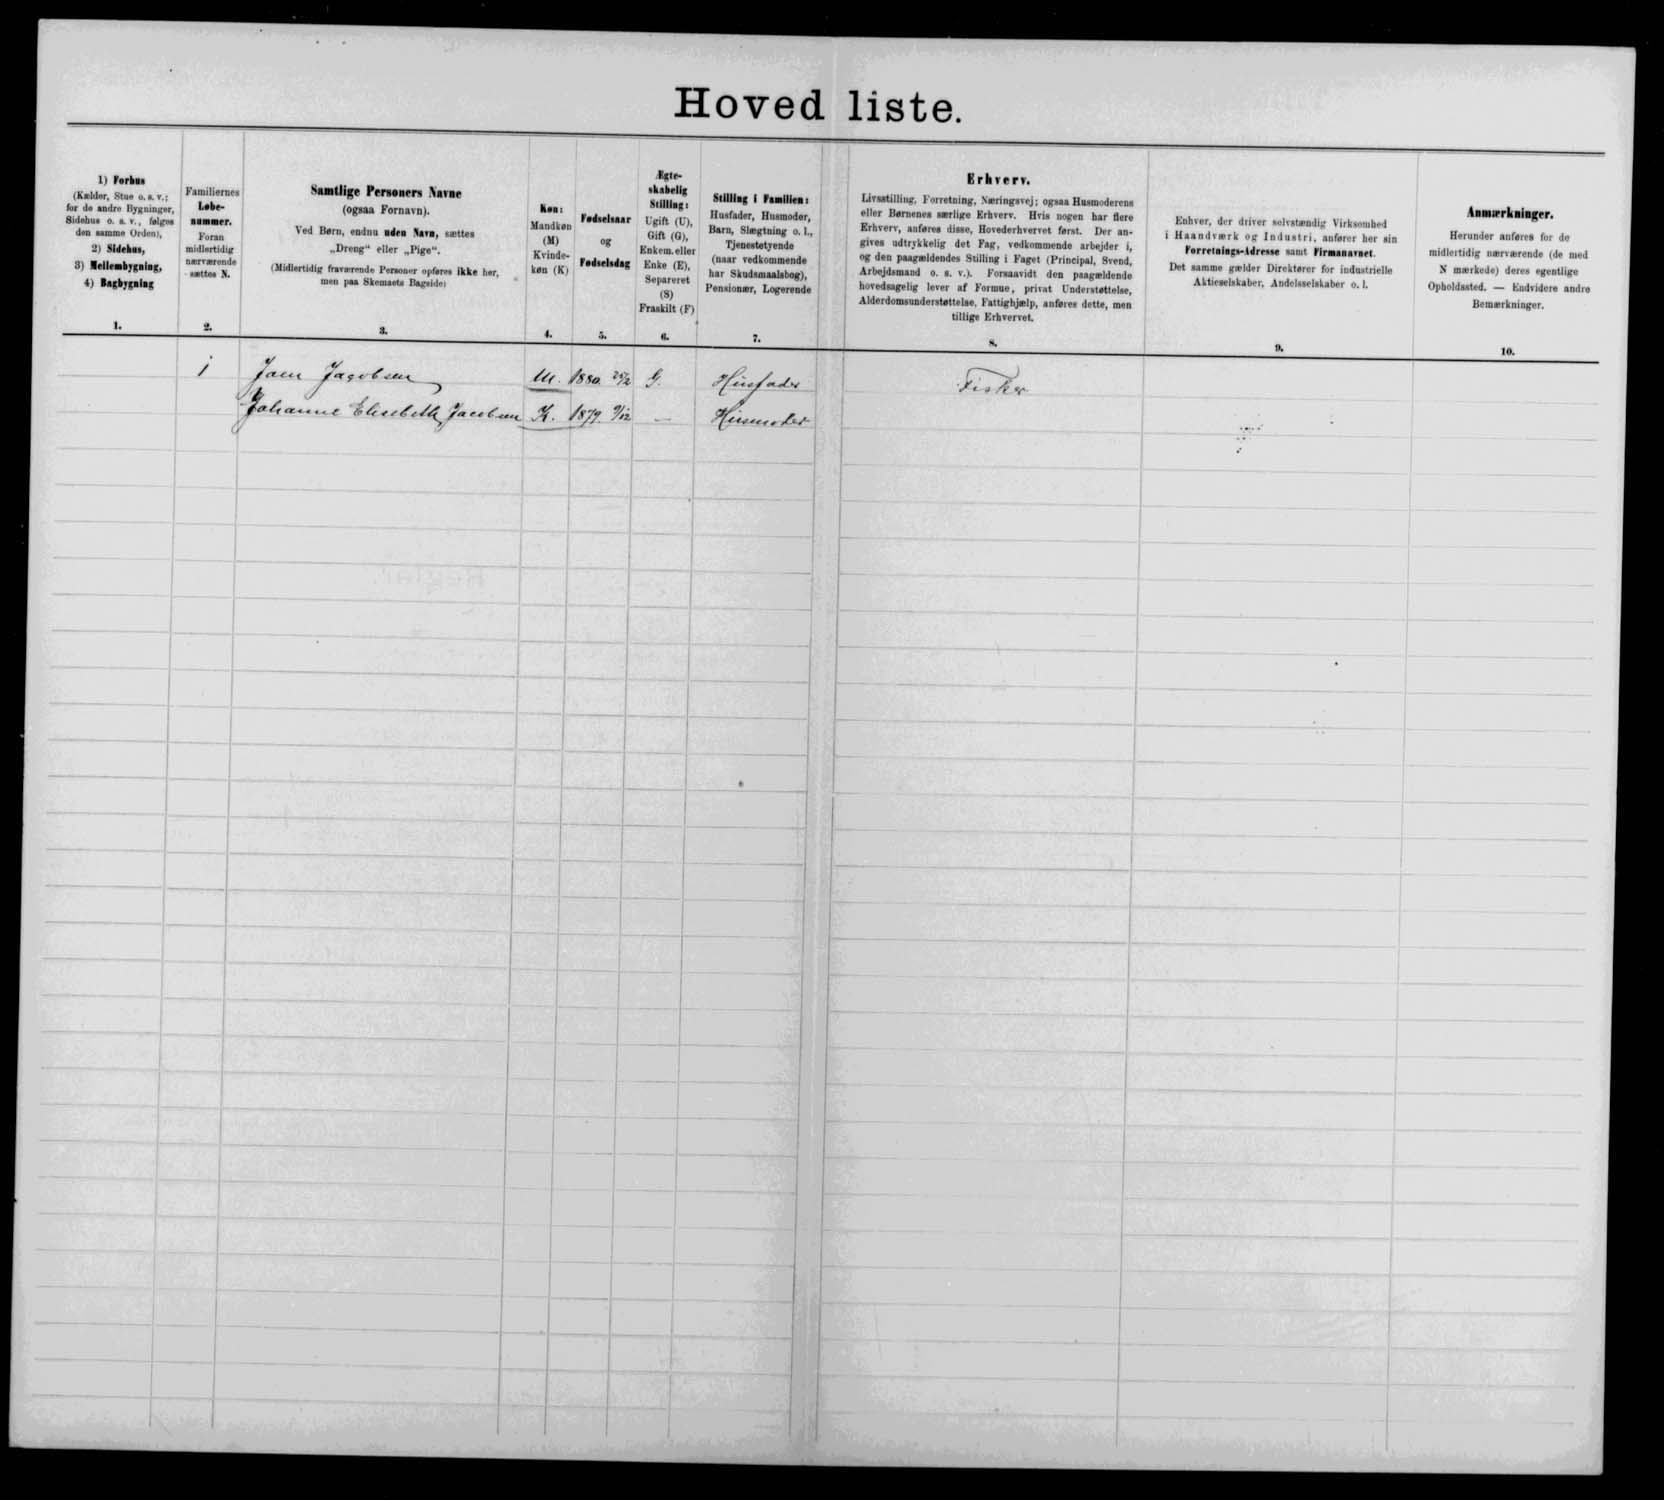 Hoved liste.
1) Forhus
(Kælder, Stue o. s. v.;
for de andre Bygninger,
Sidehus o. s. v., følges
den samme Orden),
2) Sidehus,
3) Mellembygning,
4) Bagbygning
1.
Familiernes
Løbe-
nummer.
Foran
midlertidig
nærværende
sættes N.
2.
Samtlige Personers Navne
(ogsaa Fornavn).
Ved Børn, endnu uden Navn, sættes
„Dreng“ eller „Pige“.
(Midlertidig fraværende Personer opføres ikke her,
men paa Skemaets Bagside)
3.
Køn:
Mandkøn
(M)
Kvinde-
køn (K)
4.
Fødselsaar
og
Fødselsdag
5.
Ægte-
skabelig
Stilling:
Ugift (U),
Gift (G),
Enkem. eller
Enke (E),
Separeret
(S)
Fraskilt (F)
6.
Stilling i Familien:
Husfader, Husmoder,
Barn, Slægtning o. l.,
Tjenestetyende
(naar vedkommende
har Skudsmaalsbog),
Pensionær, Logerende
7.
Erhverv.
Livsstilling, Forretning, Næringsvej; ogsaa Husmoderens
eller Børnenes særlige Erhverv. Hvis nogen har flere
Erhverv, anføres disse, Hovederhvervet først. Der an-
gives udtrykkelig det Fag, vedkommende arbejder i,
og den paagældendes Stilling i Faget (Principal, Svend,
Arbejdsmand o. s. v.). Forsaavidt den paagældende
hovedsagelig lever af Formue, privat Understøttelse,
Alderdomsunderstøttelse, Fattighjælp, anføres dette, men
tillige Erhvervet.
8.
Enhver, der driver selvstændig Virksomhed
i Haandværk og Industri, anfører her sin
Forretnings-Adresse samt Firmanavnet.
Det samme gælder Direktører for industrielle
Aktieselskaber, Andelsselskaber o. l.
9.
Anmærkninger.
Herunder anføres for de
midlertidig nærværende (de med
N mærkede) deres egentlige
Opholdssted. — Endvidere andre
Bemærkninger.
10.
1 Jacobsen M. 1880. 25/2 G. Husfader Fisker
Johanne Elisebeth Jacobsen K. 1879. 9/12 — Husmoder